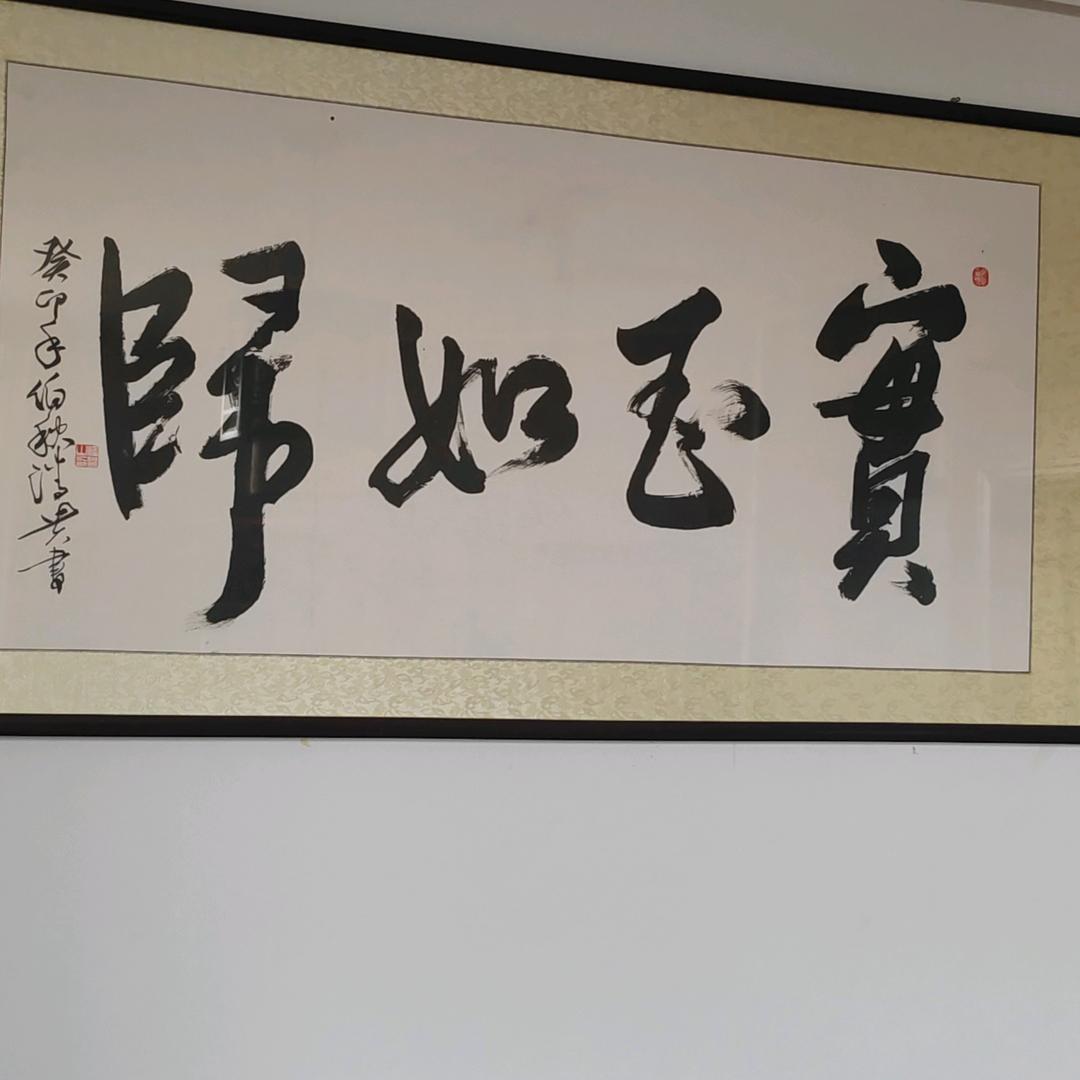 賓至如歸
癸卯年伯秋清其書